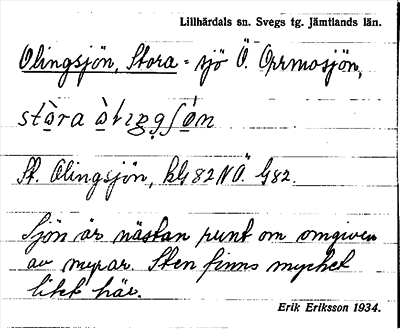 Lillhärdals sn. Svegs tg. Jämtlands län.
Olingsjön, Stora = sjö Ö. Orrmosjön,
St. Olingsjön, kbl 82 NÖ. G 82.
Sjön är nästan runt om omgiven
av myrar. Sten finns mycket
likt här.
Erik Eriksson 1934.